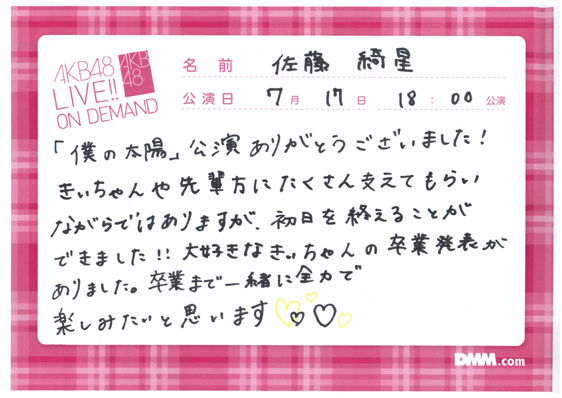 AKB48
LIVE!!
ON DEMAND
AKB
48
名前 佐藤 綺星
公演日 7月 17日 18:00 公演
「僕の太陽」公演ありがとうございました!
きぃちゃんや先輩方にたくさん支えてもらい
ながらではありますが、初日を終えることが
できました!! 大好きなきぃちゃんの卒業発表が
ありました。卒業まで一緒に全力で
楽しみたいと思います
DMM.com